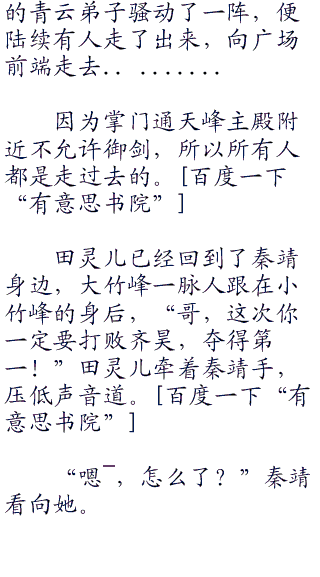 的青云弟子骚动了一阵，便
陆续有人走了出来，向广场
前端走去．．．．．．．．．
因为掌门通天峰主殿附
近不允许御剑，所以所有人
都是走过去的。[百度一下
“有意思书院”]
田灵儿已经回到了秦靖
身边，大竹峰一脉人跟在小
竹峰的身后，“哥，这次你
一定要打败齐昊，夺得第
一！”田灵儿牵着秦靖手，
压低声音道。[百度一下“有
意思书院”]
“嗯¯，怎么了？”秦靖
看向她。